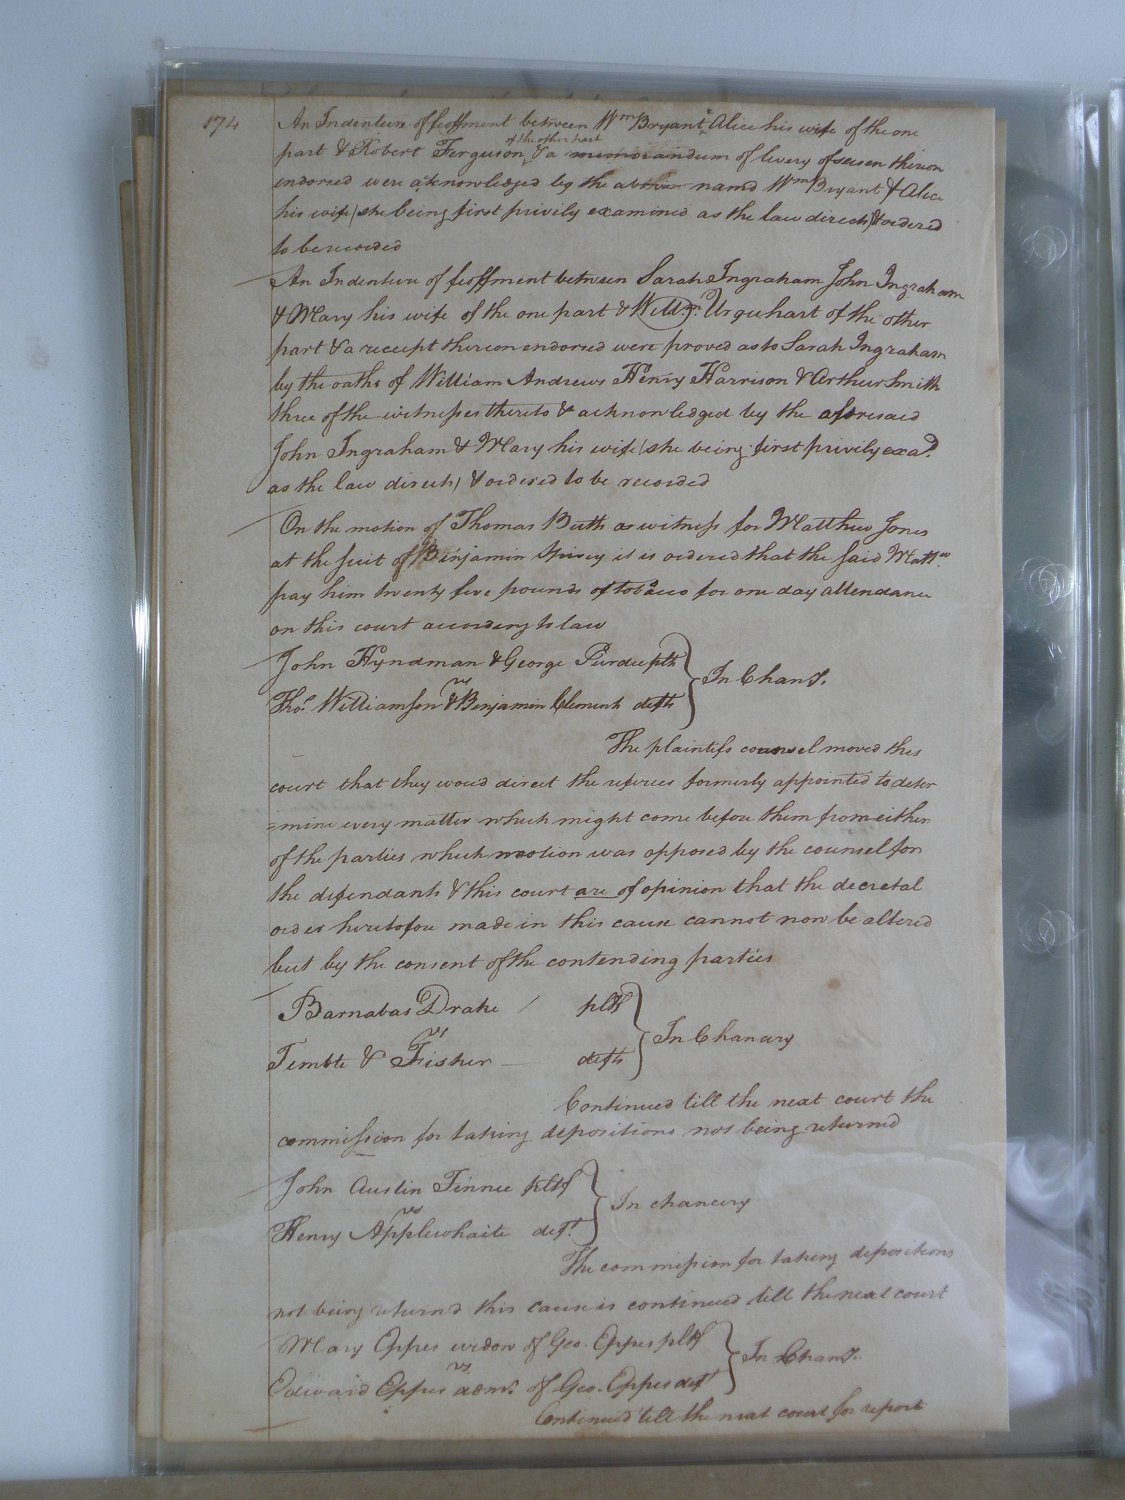 174
An Indenture of feoffment between Wm Bryant & Alice his wife of the one
part & Robert Ferguson of the other part & a memorandum of livery of seisen thereon
endorsed were acknowledged by the above named Wm Bryant & Alice
his wife (she being first privily examined as the law directs) & ordered
to be recorded
An Indenture of feoffment between Sarah Ingraham John Ingraham
& Mary his wife of the one part & Willm. Urquehart of the other
part & a receipt thereon endorsed were proved as to Sarah Ingraham
by the oaths of William Andrews Henry Harrison & Arthur Smith
three of the witnesses thereto & acknowledged by the aforesaid
John Ingraham & Mary his wife (she being first privily exad.
as the law directs) & ordered to be recorded
On the motion of Thomas Butts a witness for Matthew Jones
at the suit of Benjamin Spivey it is ordered that the said Mattw.
pay him twenty five pounds of tobacco for one day attendance
on this court according to law
John Hyndman & George Purdie plts
vs
In Chany.
Thos. Williamson & Benjamin Clements defts
The plaintifs counsel moved this
court that they would direct the referees formerly appointed to deter
=mine every matter which might come before them from either
of the parties which motion was opposed by the counsel for
the defendants & this court are of opinion that the decretal
order heretofore made in this cause cannot now be altered
but by the consent of the contending parties
Barnabas Drake pltf
vs
In Chancery
Timble & Fisher defts
Continued till the next court the
commission for taking depositions not being returned
John Austin Finnie pltf
vs
In chancery
Henry Applewhaite deft.
The commission for taking depositions
not being returned this cause is continued till the next court
Mary Eppes widow of Geo. Eppes pltf
vs
In Chany.
Edward Eppes admr. of Geo. Eppes deft
Continued till the next court for report